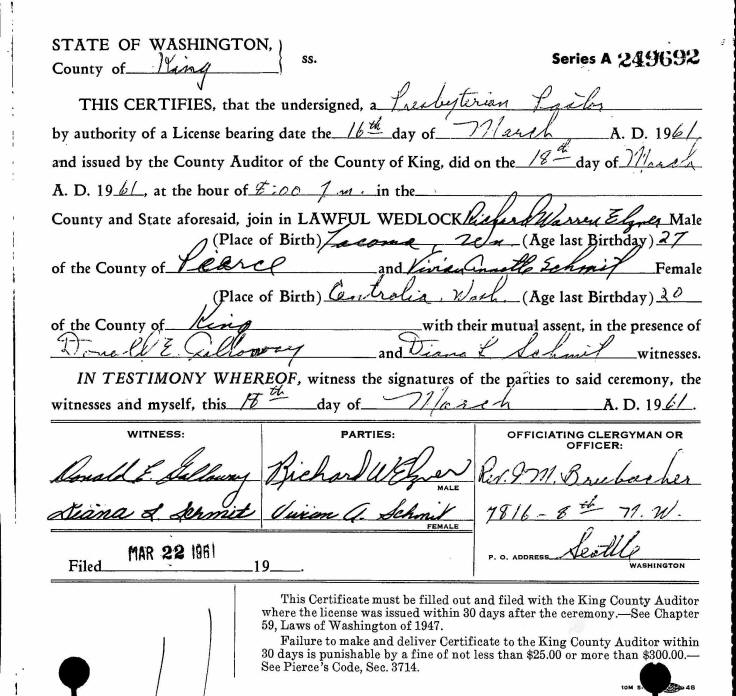 STATE OF WASHINGTON,
County of King ss. Series A 249692
THIS CERTIFIES, that the undersigned, a Presbyterian Pastor
by authority of a License bearing date the 16th day of March A. D. 1961,
and issued by the County Auditor of the County of King, did on the 18th day of March
A. D. 1961, at the hour of 8:00 P.m. in the
County and State aforesaid, join in LAWFUL WEDLOCK Richard Warren Elzner Male
(Place of Birth) Tacoma, Wn (Age last Birthday) 27
of the County of Pearce and Vivian Annette Schmit Female
(Place of Birth) Centralia, Wash. (Age last Birthday) 20
of the County of King with their mutual assent, in the presence of
Donald E. Galloway and Diana L Schmit witnesses.
IN TESTIMONY WHEREOF, witness the signatures of the parties to said ceremony, the
witnesses and myself, this 18th day of March A. D. 1961.
WITNESS: PARTIES: OFFICIATING CLERGYMAN OR
OFFICER:
Donald E. Galloway Richard W Elzner Rev. J M. Brubacher
MALE
Diana L Schmit Vivian A. Schmit 7816 - 8th N. W.
FEMALE
P. O. ADDRESS Seattle
WASHINGTON
Filed MAR 22 1961 19
This Certificate must be filled out and filed with the King County Auditor
where the license was issued within 30 days after the ceremony.—See Chapter
59, Laws of Washington of 1947.
Failure to make and deliver Certificate to the King County Auditor within
30 days is punishable by a fine of not less than $25.00 or more than $300.00.—
See Pierce's Code, Sec. 3714.
10M